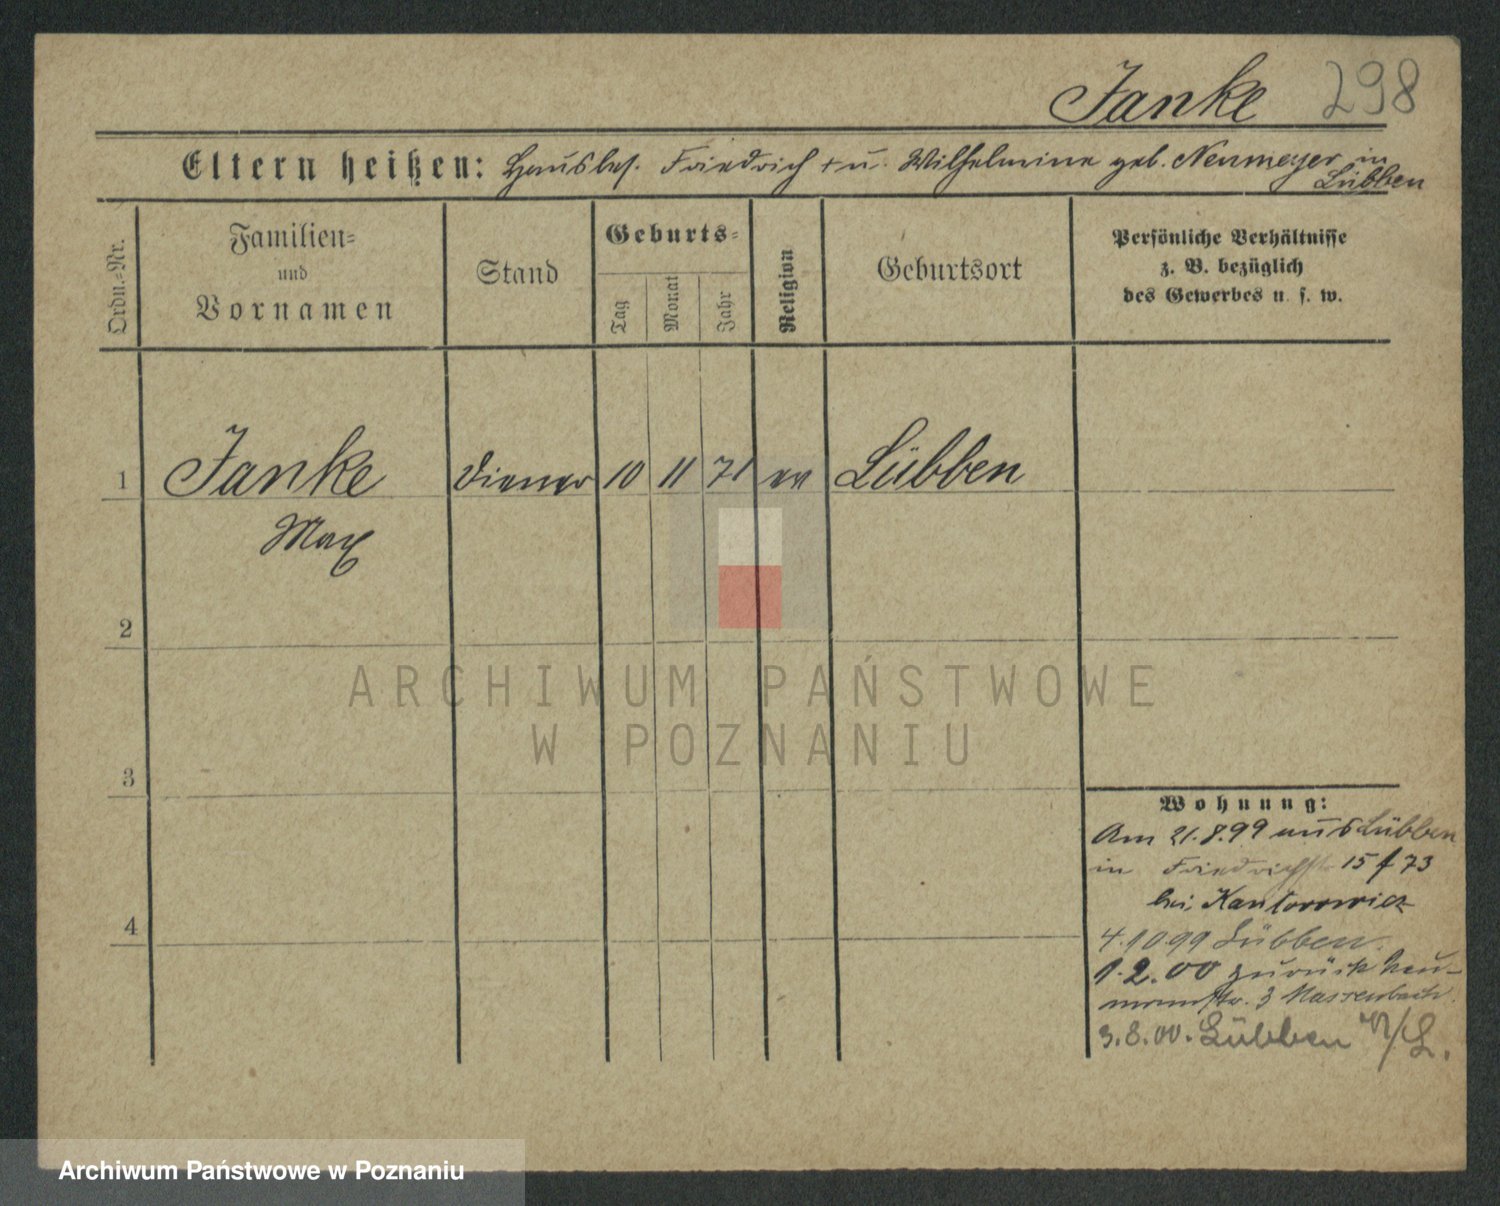 Janke 298
Eltern heißen: Hausbes. Friedrich + u. Wilhelmine geb. Neumeyer in
Lübben
Ordn.-Nr.
Familien-
und
Vornamen
Stand
Geburts-
Tag
Monat
Jahr
Religion
Geburtsort
Persönliche Verhältnisse
z. B. bezüglich
des Gewerbes u. s. w.
1 Janke Diener 10 11 71 ev Lübben
Max
2
ARCHIWUM PAŃSTWOWE
W POZNANIU
3
4
Wohnung:
Am 21.8.99 aus Lübben
in Friedrichst 15 f 73
bei Kantorowicz
4.10.99 Lübben.
1.2.00 zurück Nau-
mannstr. 3 Massenbach
3.8.00. Lübben N/L.
Archiwum Państwowe w Poznaniu